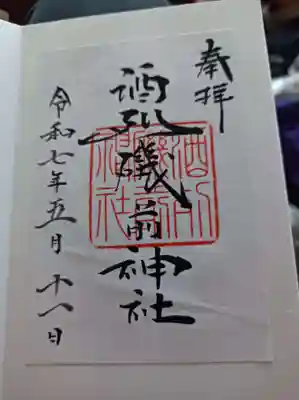 奉拝
酒列磯前神社
令和七年五月十八日
酒列磯前神社